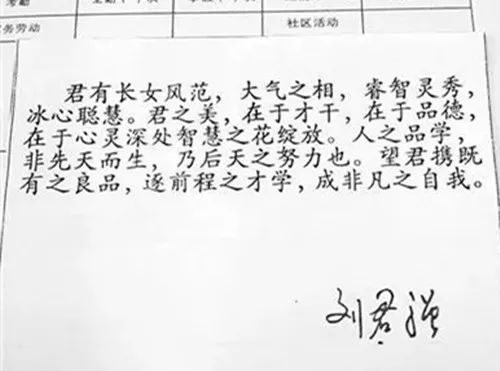 考勤
务劳动
社区活动
君有长女风范，大气之相，睿智灵秀，
冰心聪慧。君之美，在于才干，在于品德，
在于心灵深处智慧之花绽放。人之品学，
非先天而生，乃后天之努力也。望君携既
有之良品，逐前程之才学，成非凡之自我。
刘君